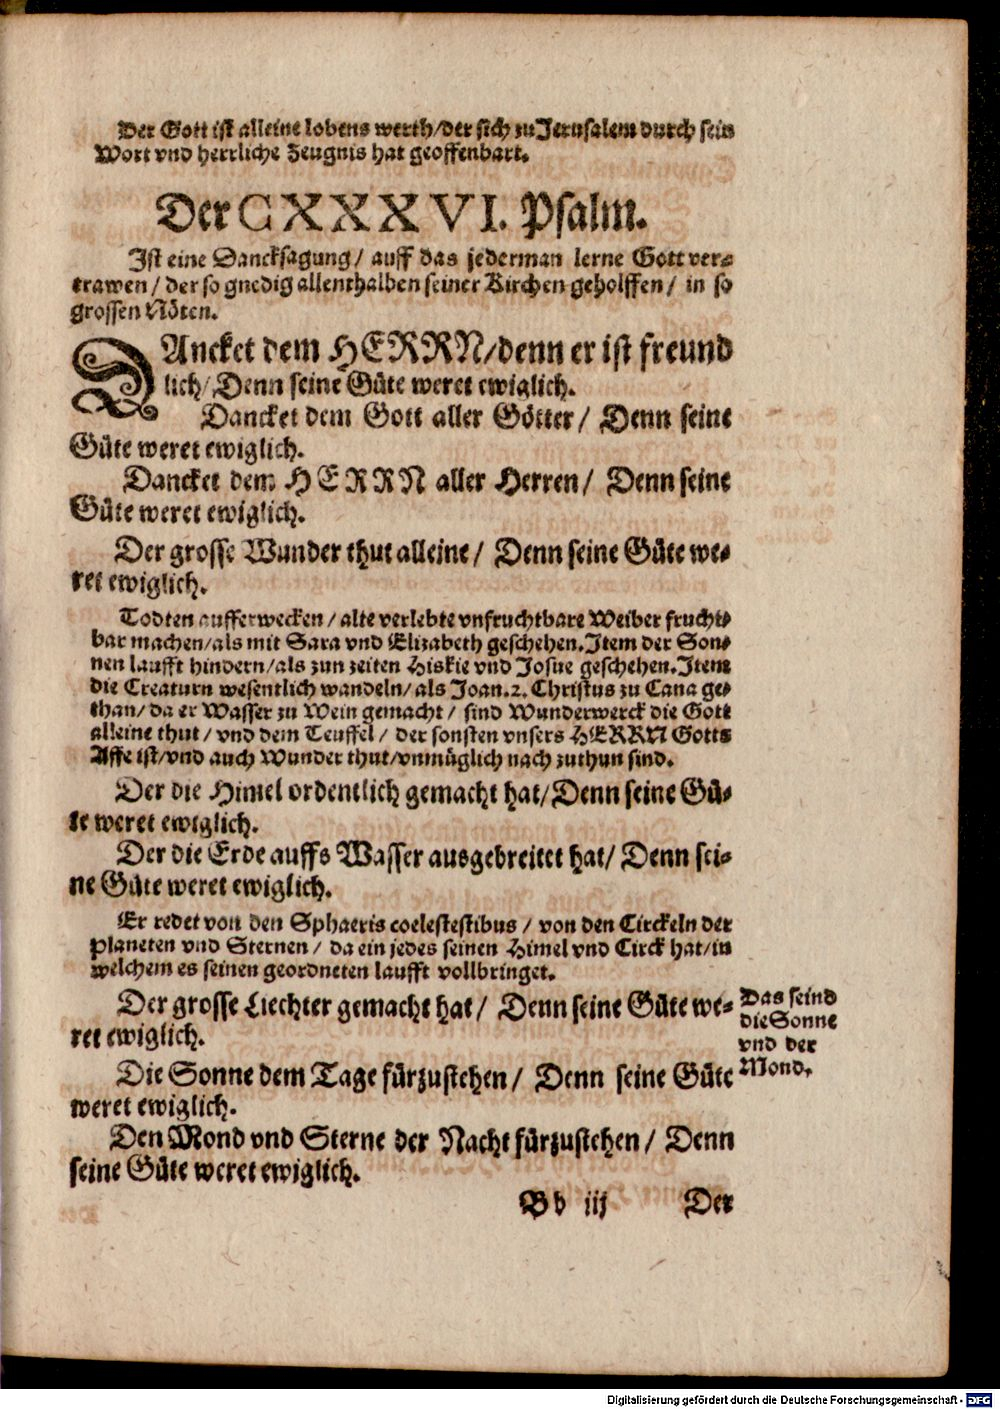 Der Gott ist alleine lobens werth/der sich zu Jerusalem durch sein
Wort vnd herrliche Zeugnis hat geoffenbart.
Der CXXXVI. Psalm.
Ist eine Dancksagung/ auff das jederman lerne Gott ver-
trawen/ der so gnedig allenthalben seiner Kirchen geholffen/ in so
grossen Nöten.
DAncket dem HERRN/denn er ist freund
lich/Denn seine Güte weret ewiglich.
Dancket dem Gott aller Götter/ Denn seine
Güte weret ewiglich.
Dancket dem HERRN aller Herren/ Denn seine
Güte weret ewiglich.
Der grosse Wunder thut alleine/ Denn seine Güte we-
ret ewiglich.
Todten aufferwecken/alte verlebte vnfruchtbare Weiber frucht-
bar machen/als mit Sara vnd Elizabeth geschehen.Item der Son-
nen laufft hindern/als zun zeiten Hiskie vnd Josue geschehen.Item
die Creaturn wesentlich wandeln/als Joan.2. Christus zu Cana ge-
than/da er Wasser zu Wein gemacht/ sind Wunderwerck die Gott
alleine thut/vnd dem Teuffel/ der sonsten vnsers HERRN Gotts
Affe ist/vnd auch Wunder thut/vnmüglich nach zuthun sind.
Der die Himel ordentlich gemacht hat/Denn seine Gü-
te weret ewiglich.
Der die Erde auffs Wasser ausgebreitet hat/ Denn sei-
ne Güte weret ewiglich.
Er redet von den Sphaeris coelestestibus/ von den Circkeln der
Planeten vnd Sternen/ da ein jedes seinen Himel vnd Circk hat/in
welchem es seinen geordneten laufft vollbringet.
Der grosse Liechter gemacht hat/ Denn seine Güte we-
ret ewiglich.
Das seind
die Sonne
vnd der
Mond.
Die Sonne dem Tage fürzustehen/ Denn seine Güte
weret ewiglich.
Den Mond vnd Sterne der Nacht fürzustehen/ Denn
seine Güte weret ewiglich.
Bb iij Der
Digitalisierung gefördert durch die Deutsche Forschungsgemeinschaft - DFG